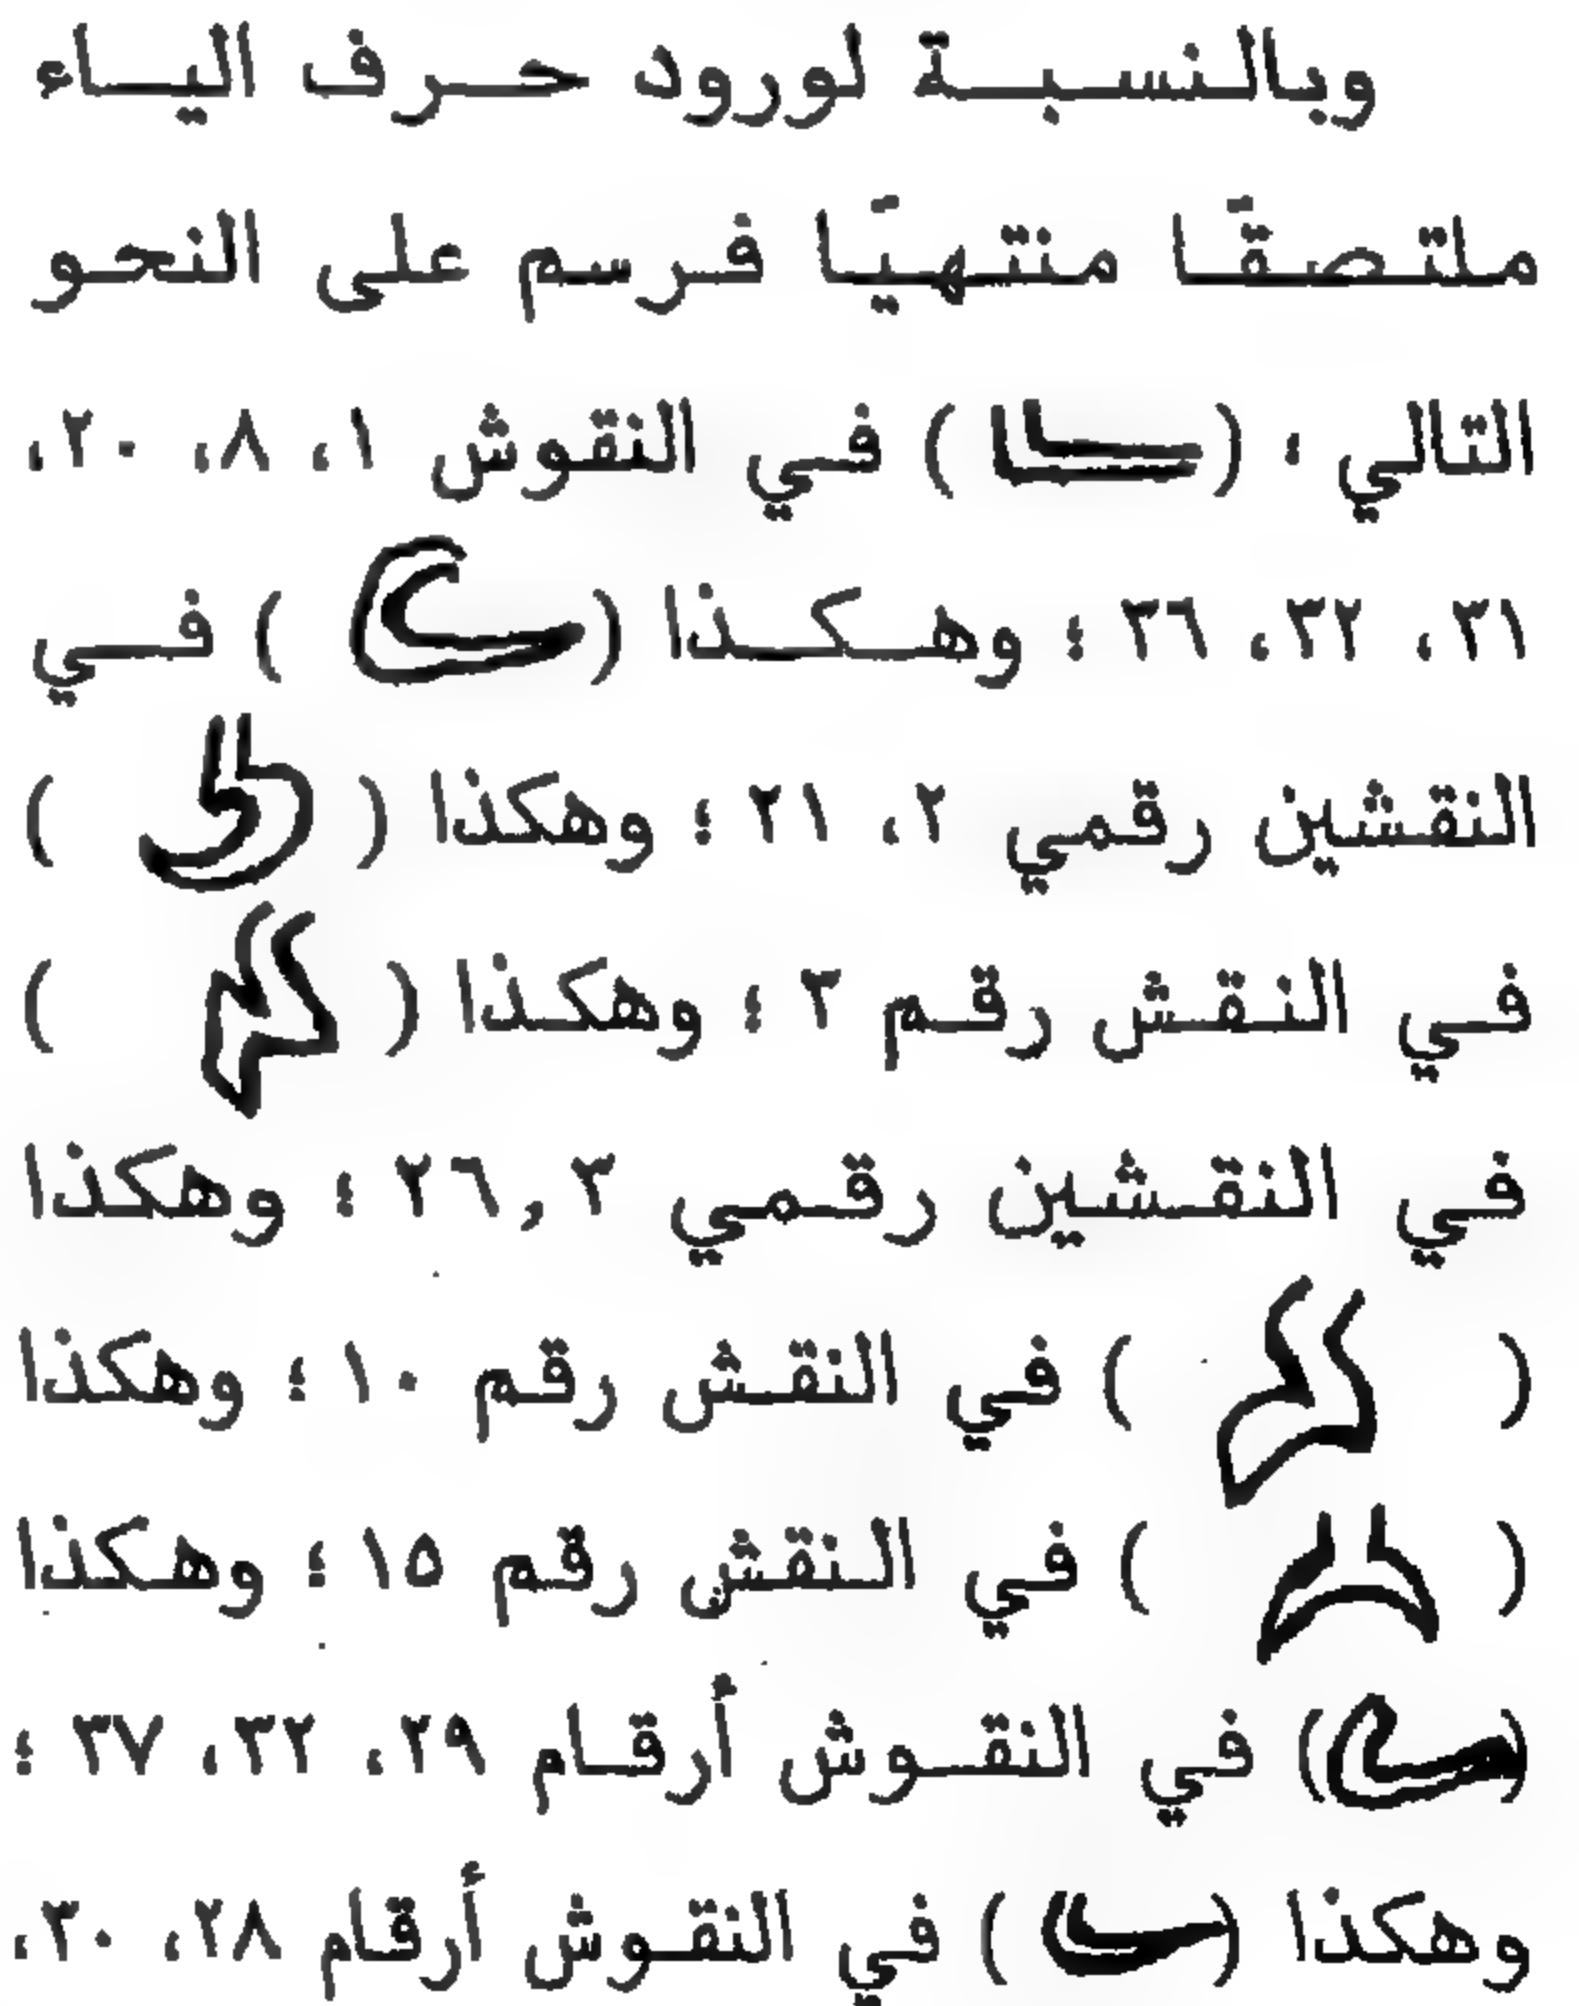 وبالنسبة لورود حرف الياء
ملتصقًا منتهيًا فرسم على النحو
التالي ؛ ( ) في النقوش ١، ٨، ٢٠،
٢١، ٣٢، ٣٦ ؛ وهكذا ( ) في
النقشين رقمي ٢، ٢١ ؛ وهكذا ( )
في النقش رقم ٣ ؛ وهكذا ( )
في النقشين رقمي ٣, ٢٦ ؛ وهكذا
( ) في النقش رقم ١٠ ؛ وهكذا
( ) في النقش رقم ١٥ ؛ وهكذا
( ) في النقوش أرقام ٢٩، ٣٢، ٣٧ ؛
وهكذا ( ) في النقوش أرقام ٢٨، ٣٠،